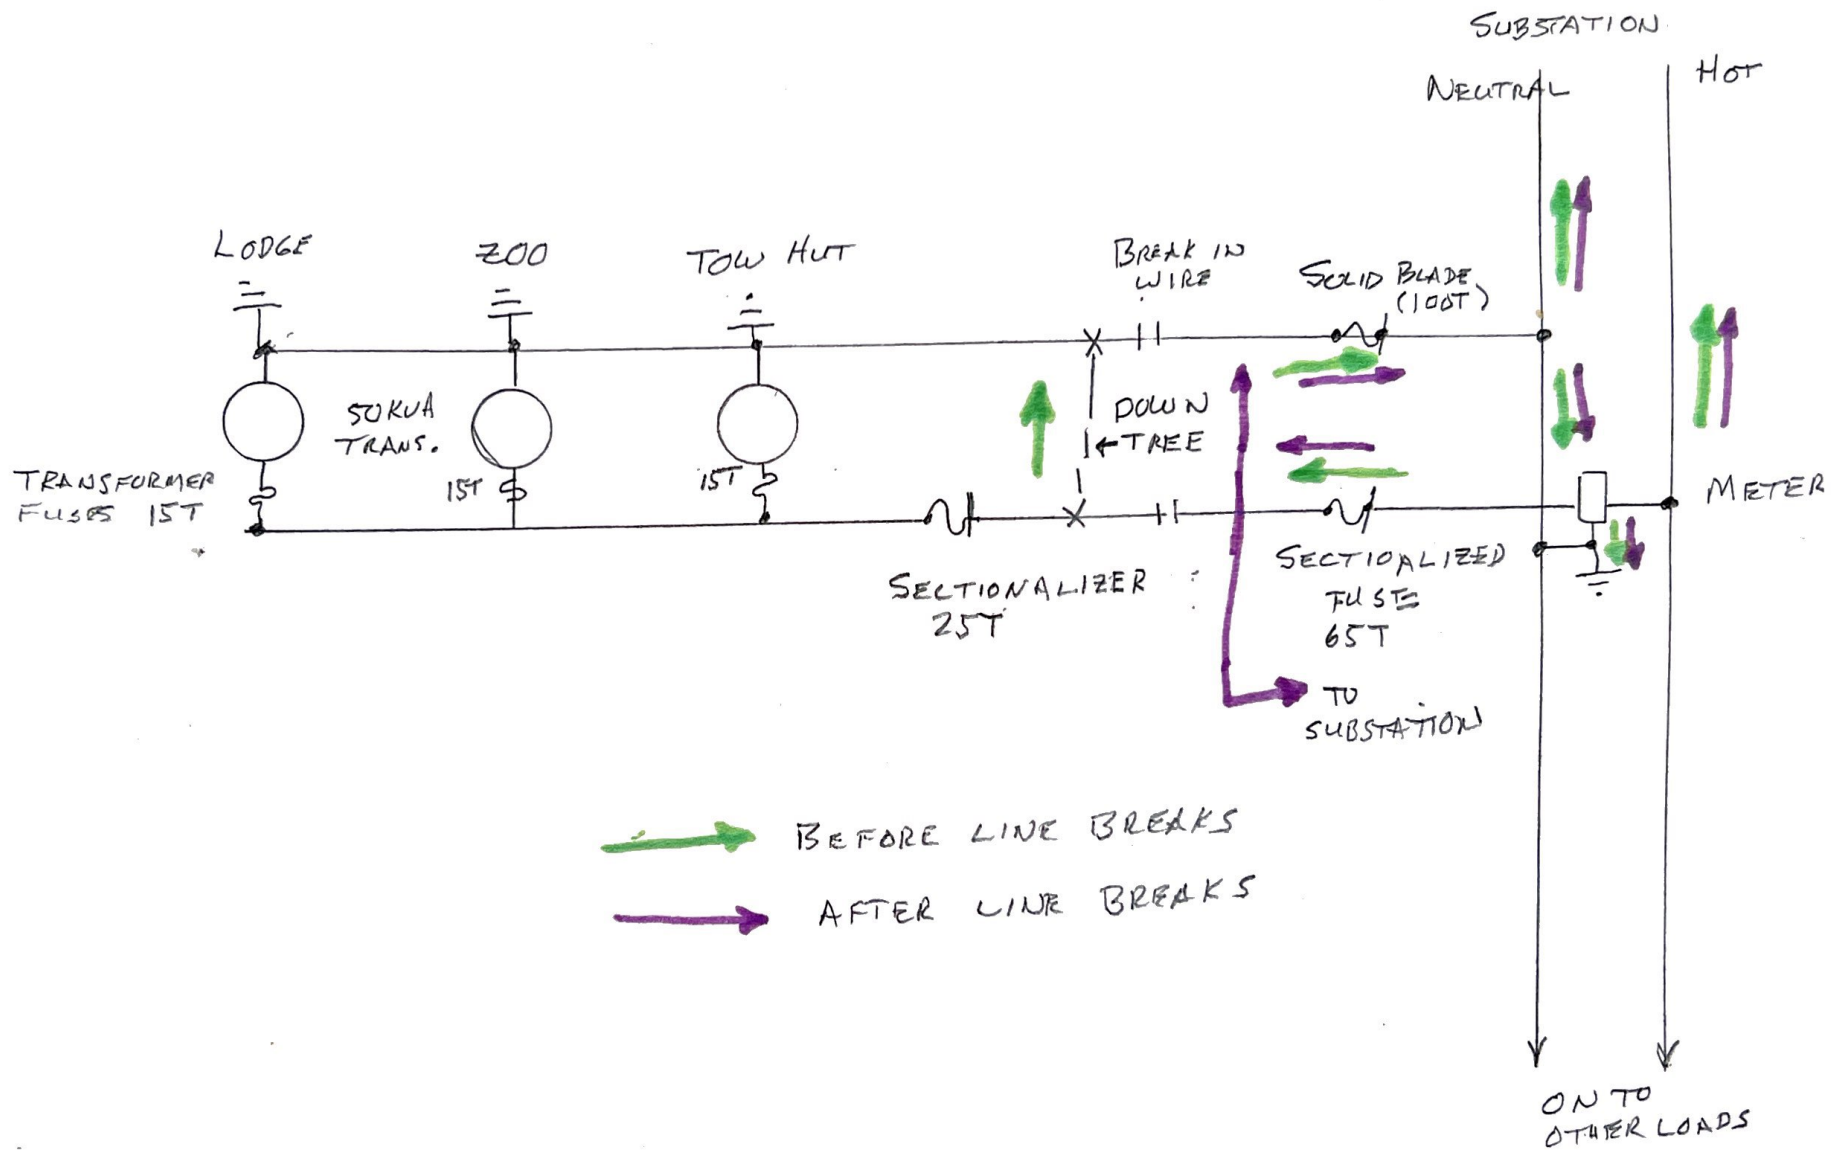 SUBSTATION
NEUTRAL
HOT
LODGE
ZOO
TOW HUT
BREAK IN
WIRE
SOLID BLADE
(100T)
50KVA
TRANS.
DOWN
TREE
TRANSFORMER
FUSES 15T
15T
15T
METER
SECTIONALIZER
25T
SECTIOALIZED
FUSE
65T
TO
SUBSTATION
BEFORE LINE BREAKS
AFTER LINE BREAKS
ON TO
OTHER LOADS